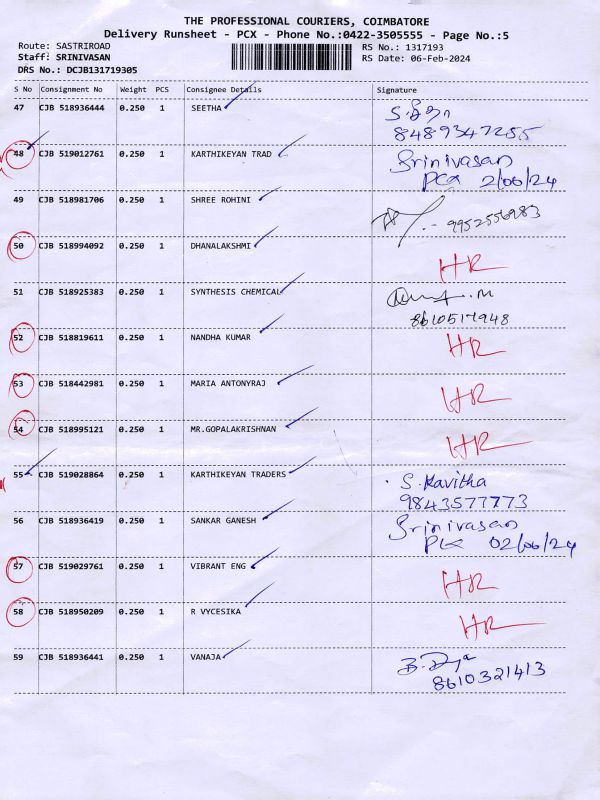 THE PROFESSIONAL COURIERS, COIMBATORE
Delivery Runsheet - PCX - Phone No.:0422-3505555 - Page No.:5
Route: SASTRIROAD RS No.: 1317193
Staff: SRINIVASAN RS Date: 06-Feb-2024
DRS No.: DCJB131719305
S No Consignment No Weight PCS Consignee Details Signature
47 CJB 518936444 0.250 1 SEETHA
8489347255
48 CJB 519012761 0.250 1 KARTHIKEYAN TRAD Srinivasan
PCX 2/06/24
49 CJB 518981706 0.250 1 SHREE ROHINI 9952556983
50 CJB 518994092 0.250 1 DHANALAKSHMI HR
51 CJB 518925383 0.250 1 SYNTHESIS CHEMICAL
8610517948
52 CJB 518819611 0.250 1 NANDHA KUMAR HR
53 CJB 518442981 0.250 1 MARIA ANTONYRAJ HR
54 CJB 518995121 0.250 1 MR.GOPALAKRISHNAN HR
55 CJB 519028864 0.250 1 KARTHIKEYAN TRADERS S. Kavitha
9843577773
56 CJB 518936419 0.250 1 SANKAR GANESH Srinivasan
02/06/24
57 CJB 519029761 0.250 1 VIBRANT ENG HR
58 CJB 518950209 0.250 1 R VYCESIKA HR
59 CJB 518936441 0.250 1 VANAJA
8610321413